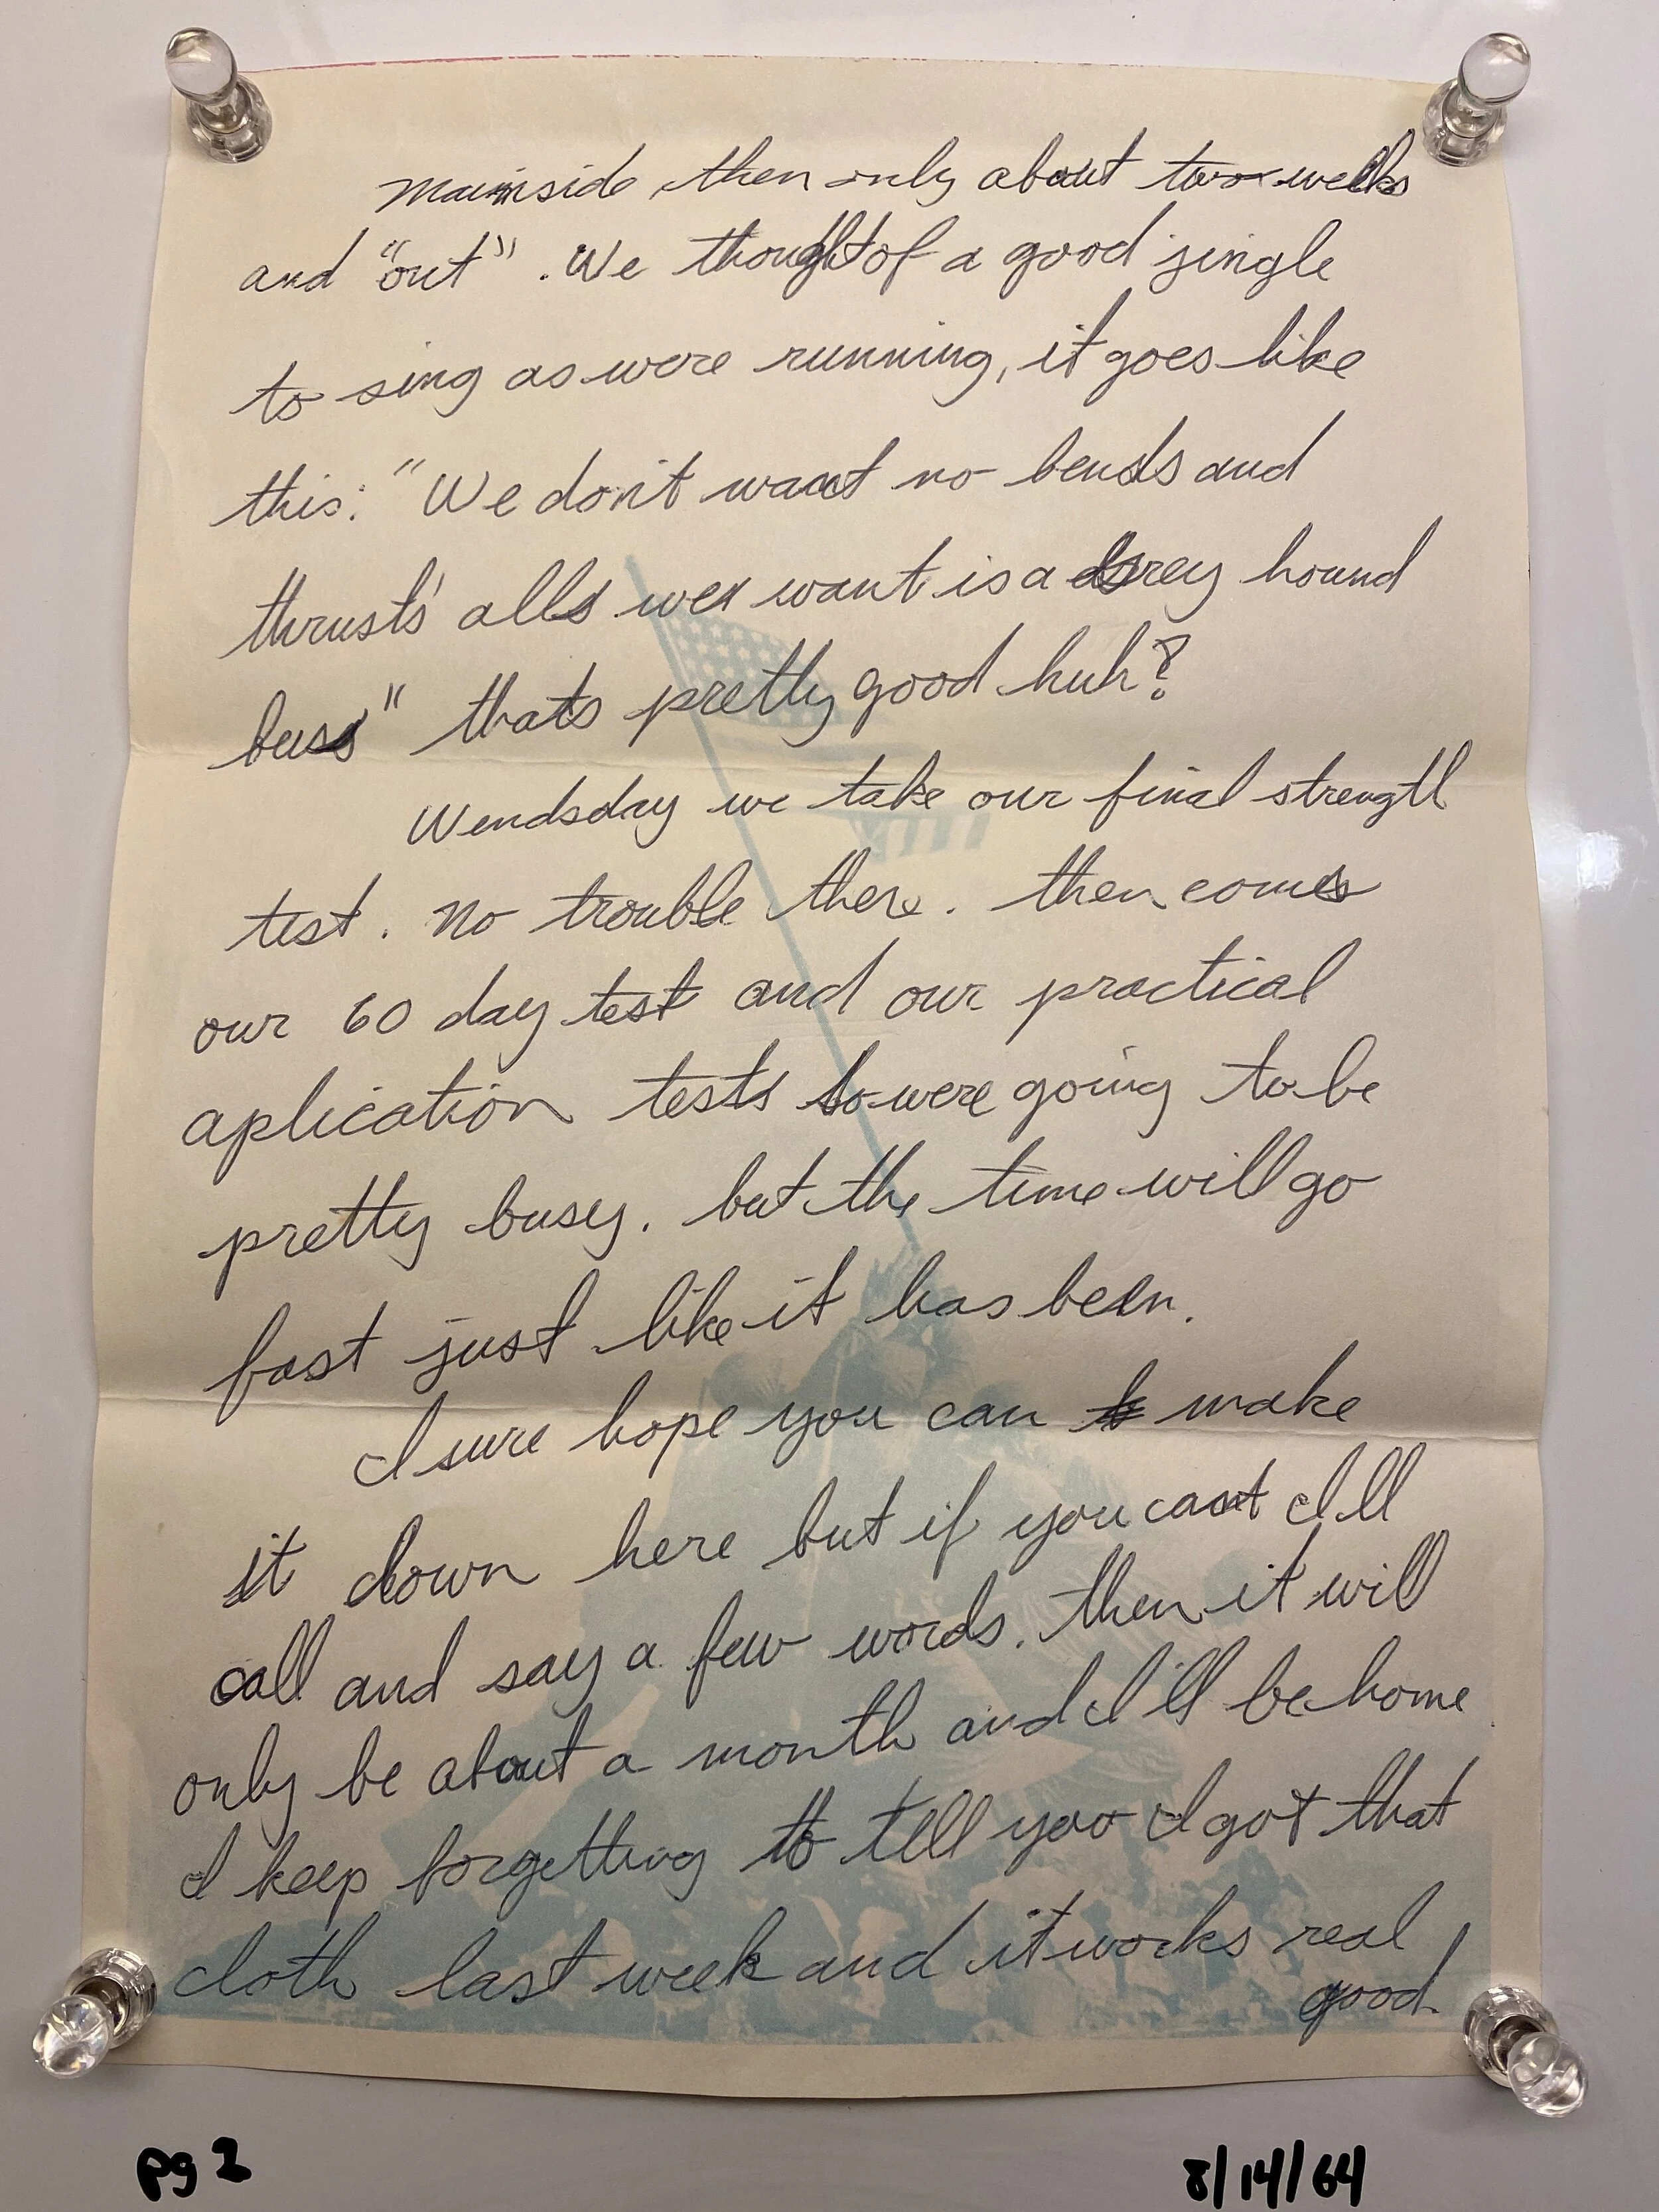 Mainside then only about two weeks
and "out". We thought of a good jingle
to sing as were running, it goes like
this: "We don't want no bends and
thrusts' alls we want is a Grey hound
buss" thats pretty good huh?
Wendsday we take our final strength
test. No trouble there. then comes
our 60 day test and our practical
aplication tests so were going to be
pretty busy. but the time will go
fast just like it has been.
I sure hope you can make
it down here but if you cant I'll
call and say a few words. then it will
only be about a month and I'll be home.
I keep forgetting to tell you I got that
cloth last week and it works real
good!
pg 2
8/14/64